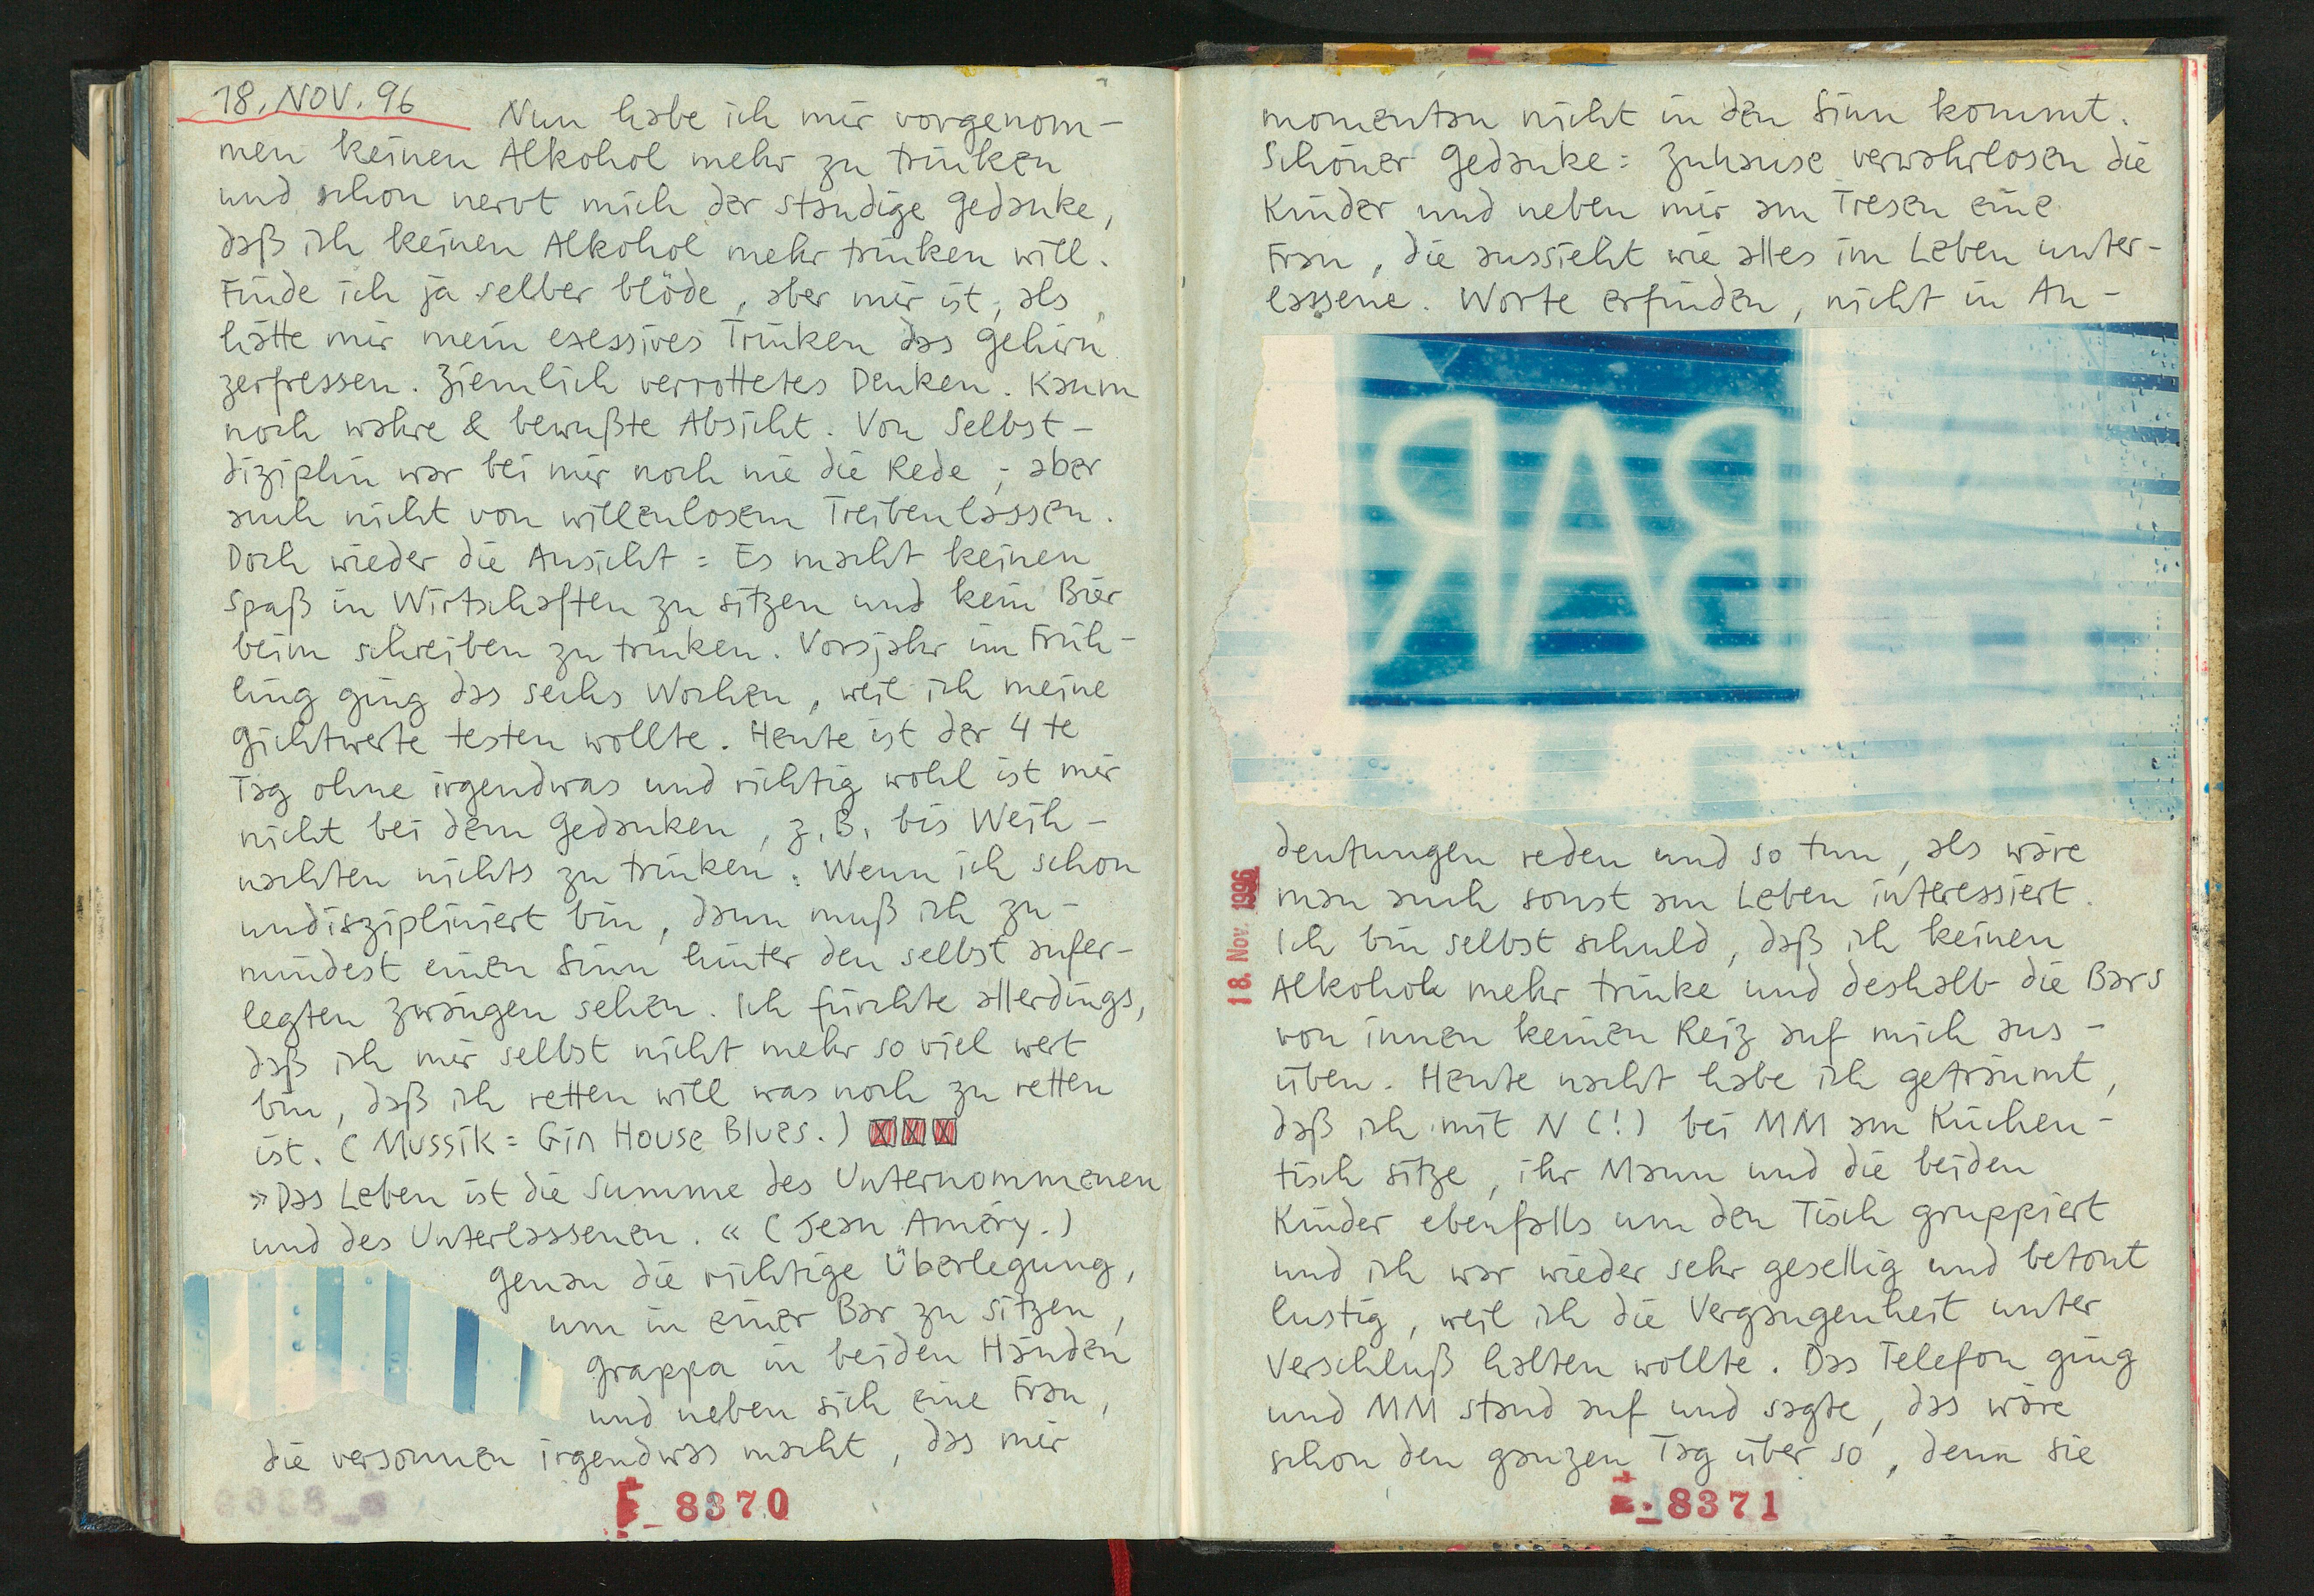 18. NOV. 96
Nun habe ich mir vorgenom-
men keinen Alkohol mehr zu trinken
und schon nervt mich der ständige Gedanke,
daß ich keinen Alkohol mehr trinken will.
Finde ich ja selber blöde, aber mir ist, als
hätte mir mein exessives Trinken das Gehirn
zerfressen. Ziemlich verrottetes Denken. Kaum
noch wahre & bewußte Absicht. Von Selbst-
diziplin war bei mir noch nie die Rede, aber
auch nicht von willenlosem Treibenlassen.
Doch wieder die Ansicht: Es macht keinen
Spaß in Wirtschaften zu sitzen und kein Bier
beim schreiben zu trinken. Vorsjahr im Früh-
ling ging das sechs Wochen, weil ich meine
Gichtwerte testen wollte. Heute ist der 4 te
Tag ohne irgendwas und richtig wohl ist mir
nicht bei dem Gedanken, z.B. bis Weih-
nachten nichts zu trinken. Wenn ich schon
undiszipliniert bin, dann muß ich zu-
mindest einen Sinn hinter den selbst aufer-
legten Zwängen sehen. Ich fürchte allerdings,
daß ich mir selbst nicht mehr so viel wert
bin, daß ich retten will was noch zu retten
ist. (Mussik: Gin House Blues.)
»Das Leben ist die Summe des Unternommenen
und des Unterlassenen.« (Jean Améry.)
Genau die richtige Überlegung,
um in einer Bar zu sitzen,
Grappa in beiden Händen
und neben sich eine Frau,
die versonnen irgendwas macht, das mir
8370
momentan nicht in den Sinn kommt.
Schöner Gedanke: Zuhause verwahrlosen die
Kinder und neben mir am Tresen eine
Frau, die aussieht wie alles im Leben unter-
lassene. Worte erfinden, nicht in An-
BAR
deutungen reden und so tun, als wäre
man auch sonst am Leben interessiert.
18. Nov. 1996
Ich bin selbst schuld, daß ich keinen
Alkohol mehr trinke und deshalb die Bars
von innen keinen Reiz auf mich aus-
üben. Heute nacht habe ich geträumt,
daß ich mit N (!) bei MM am Küchen-
tisch sitze, ihr Mann und die beiden
Kinder ebenfalls um den Tisch gruppiert
und ich war wieder sehr gesellig und betont
lustig, weil ich die Vergangenheit unter
Verschluß halten wollte. Das Telefon ging
und MM stand auf und sagte, das wäre
schon den ganzen Tag über so, denn sie
8371